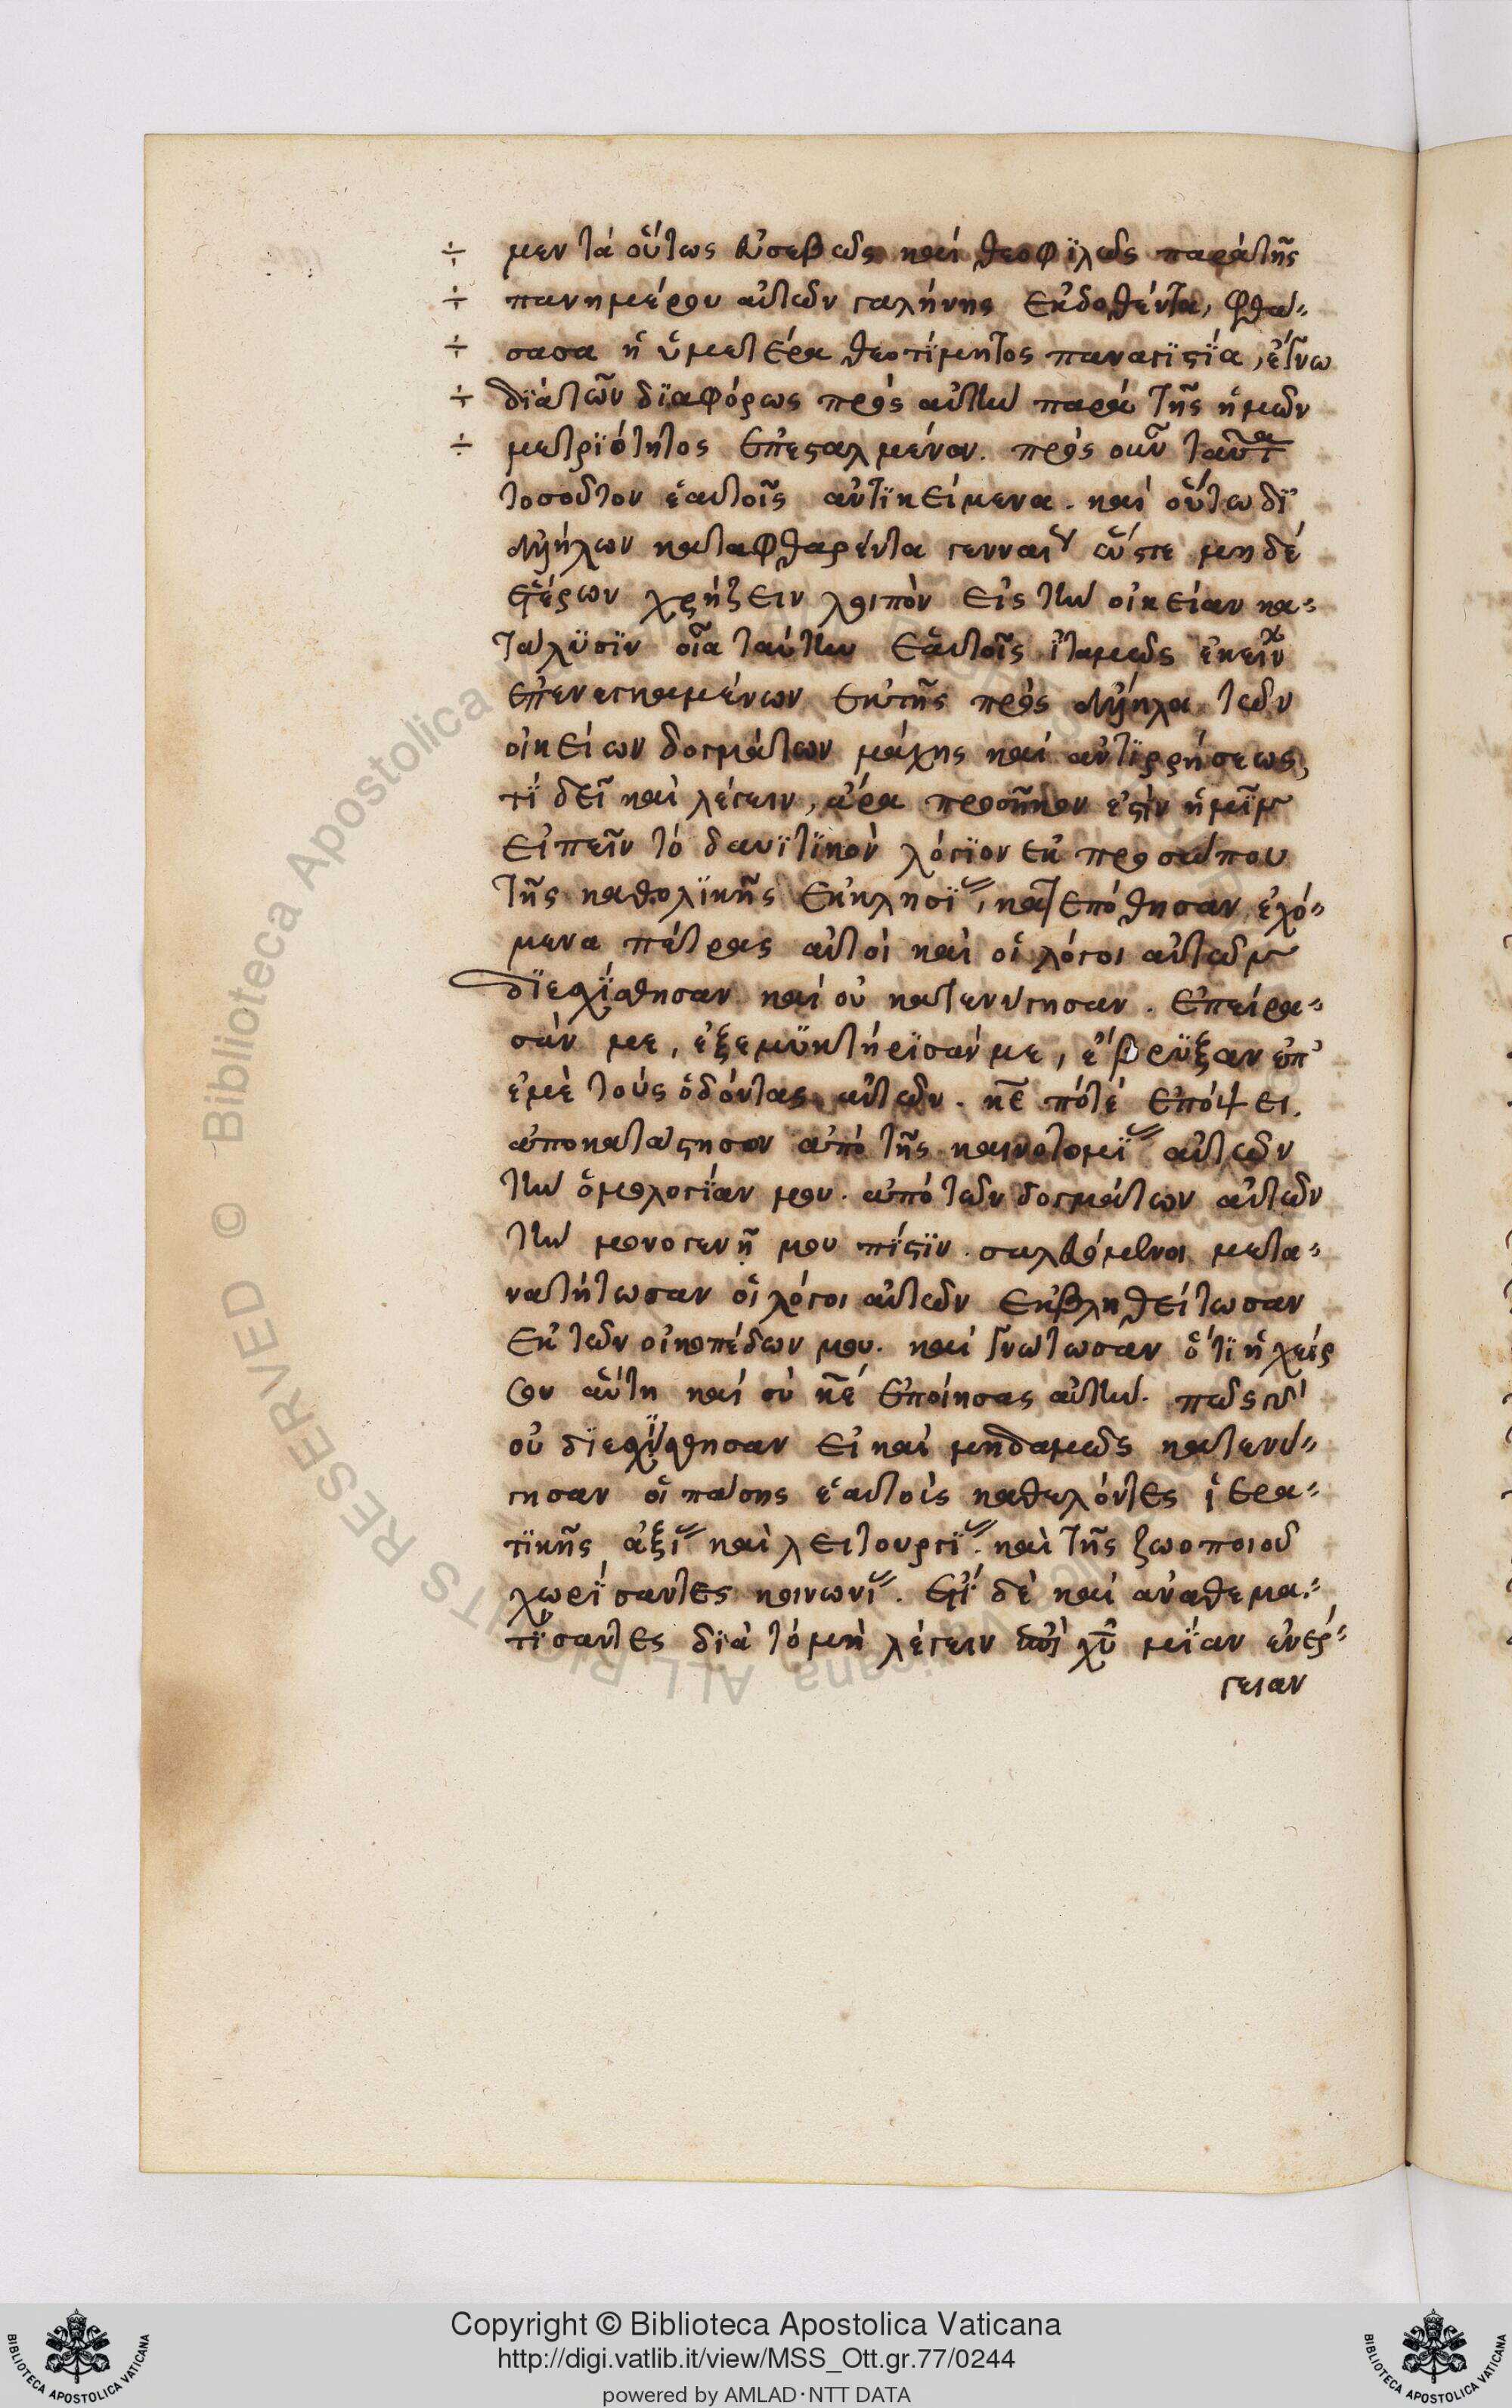 ÷ μεν τὰ οὕτως εὐσεβῶς καὶ θεοφϊλῶς παρὰ τῆς
÷ πανημέρου αὐτῶν γαλήνης ἐκδοθέντα, φθά⸗
÷ σασα ἡ ὑμετέρα θεοτίμητος παναγϊότης, ἔγνω
÷ δϊὰ τῶν δϊαφόρως πρὸς αὐτὴν παρὰ τῆς ἡμῶν
÷ μετρϊότητος ἐπεσταλμένων. πρὸς οὖν ταῦτα
τοσοῦτον ἑαυτοῖς ἀντϊκείμενα. καὶ οὕτω δϊ'
ἀλλήλων καταφθαρέντα γενναίως ὥστε μηδὲ
ἑτέρων χρήζειν λοιπὸν εἰς τὴν οἰκείαν κα⸗
τάλϋσϊν οἷα ταύτην ἑαυτοῖς ἰταμῶς ἐκείνων
ἐπενεγκαμένων ἐκ τῆς πρὸς ἄλληλα τῶν
οἰκείων δογμάτων μάχης καὶ ἀντϊρρήσεως,
τϊ δεῖ καὶ λέγειν, ἆρα προσῆκον ἐστὶν ἡμῖν
εἰπεῖν τὸ δαυϊτϊκὸν λόγϊον ἐκ προσώπου
τῆς καθολϊκῆς ἐκκλησϊας, κατεπόθησαν ἐχό⸗
μενα πέτρας αὐτοὶ καὶ οἱ λόγοι αὐτῶν
δϊεσχίσθησαν καὶ οὐ κατενύγησαν. ἐπείρα⸗
σάν με, ἐξεμϋκτήρϊσάν με, ἔβρϋξαν ἐπ'
ἐμὲ τοὺς ὀδόντας αὐτῶν. κε πότε ἐπόψει.
ἀποκατάστησον ἀπὸ τῆς καινοτομϊας αὐτῶν
τὴν ὁμολογϊαν μου. ἀπὸ τῶν δογμάτων αὐτῶν
τὴν μονογενῆ μου πίστϊν. σαλευόμενοι μετα⸗
ναστήτωσαν οἱ λόγοι αὐτῶν ἐκβληθείτωσαν
ἐκ τῶν οἰκοπέδων μου. καὶ γνώτωσαν ὅτϊ ἡ χείρ
σου αὕτη καὶ σὺ κε ἐποίησας αὐτήν. πῶς γὰρ
οὐ δϊεσχίσθησαν εἰ καὶ μηδαμῶς κατενύ⸗
γησαν οἱ πάσης ἑαυτοὺς καθελόντες ἱερα⸗
τϊκῆς ἀξϊας καὶ λειτουργϊας. καὶ τῆς ζωοποιοῦ
χωρϊσαντες κοινωνϊας. ἔτϊ δὲ καὶ ἀναθεμα⸗
τϊσαντες δϊὰ τὸ μὴ λέγειν ἐπὶ χυ μϊαν ἐνέρ⸗
γειαν
Copyright © Biblioteca Apostolica Vaticana
http://digi.vatlib.it/view/MSS_Ott.gr.77/0244
powered by AMLAD·NTT DATA